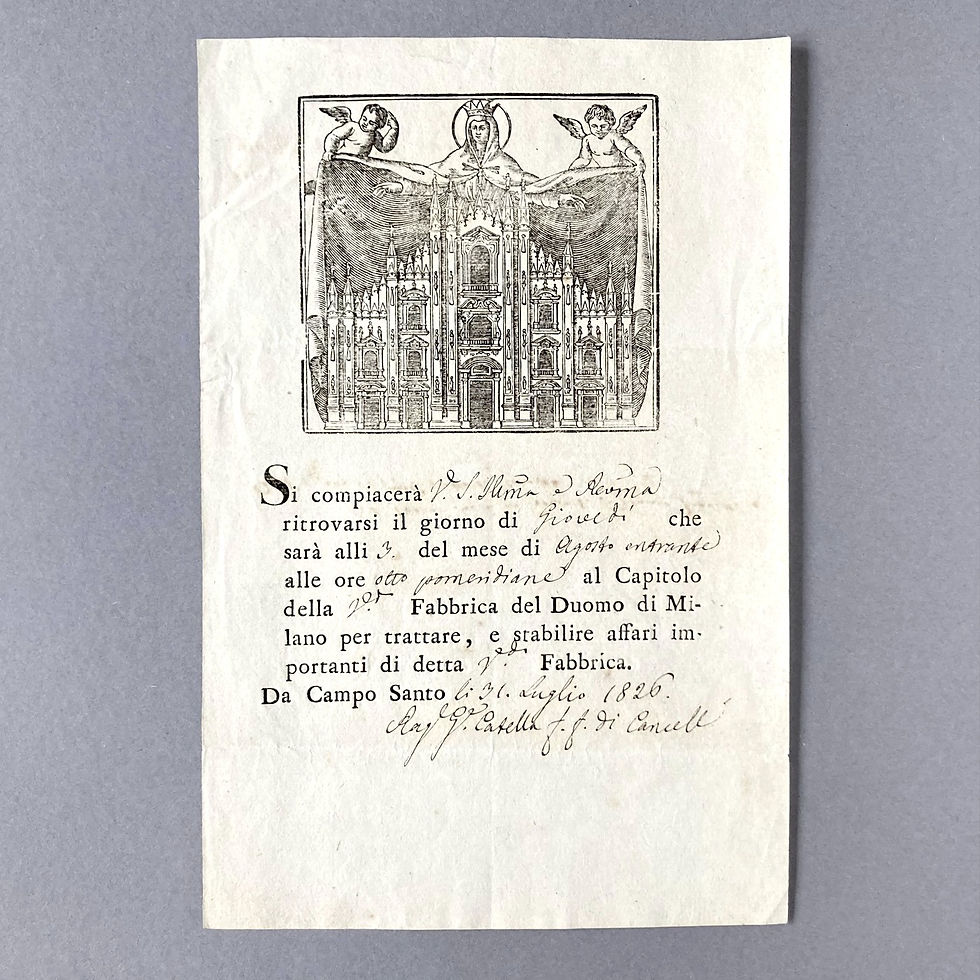 Si compiacerà V.ª S. Illm̃a e Revm̃a
ritrovarsi il giorno di Giovedì che
sarà alli 3. del mese di Agosto entrante
alle ore otto pomeridiane al Capitolo
della Fabbrica del Duomo di Mi-
lano per trattare, e stabilire affari im-
portanti di detta Fabbrica.
Da Campo Santo li 31. Luglio 1826.
Rag.ʳ G. Catella f. f. di Cancell.ᵉ